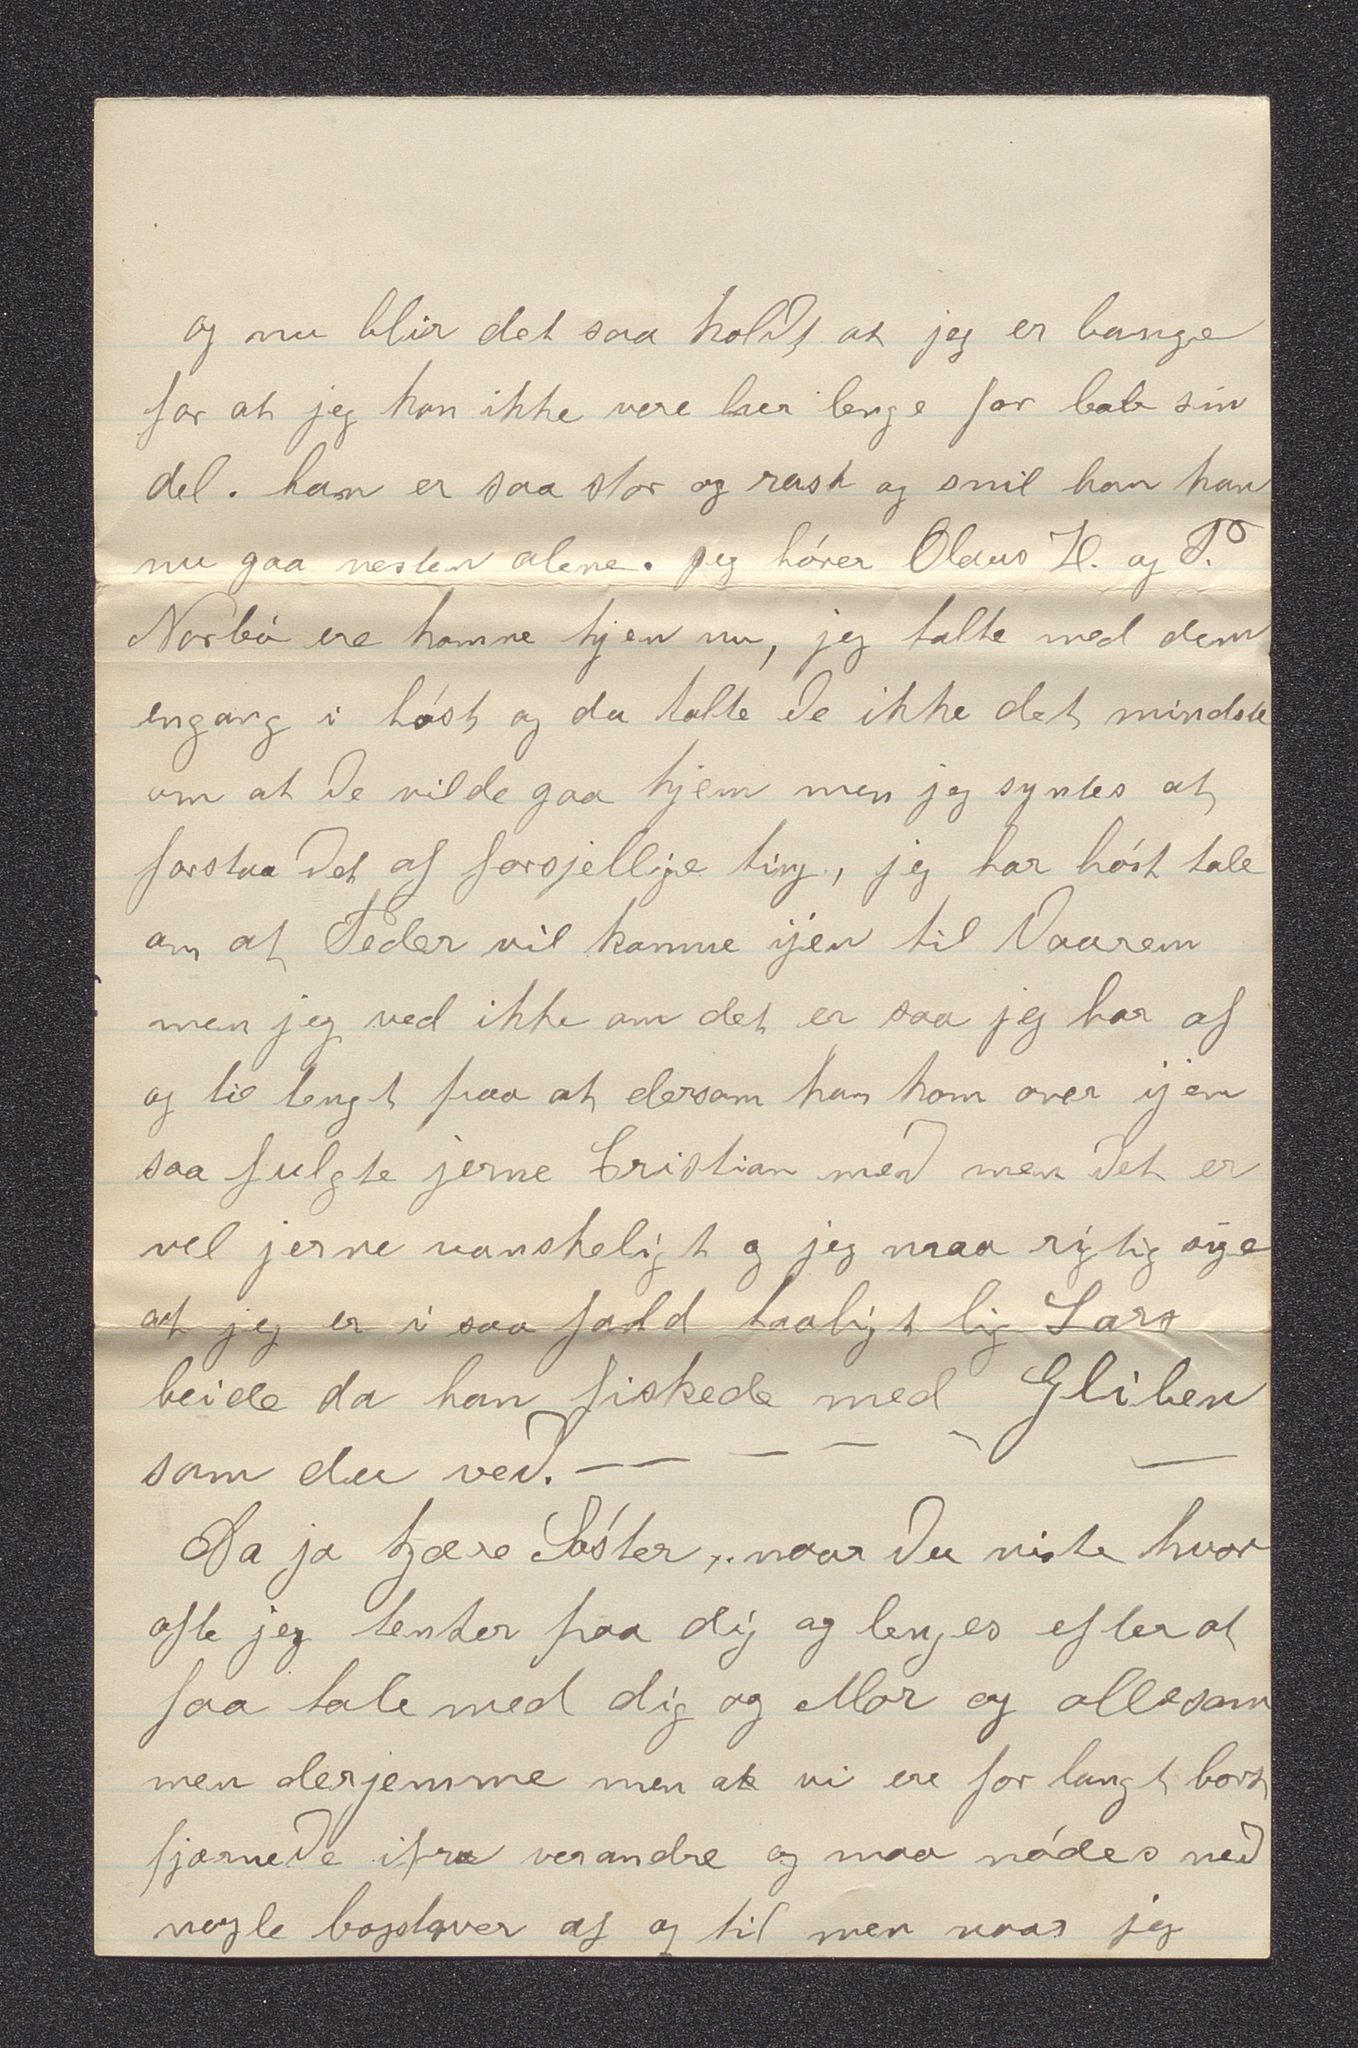 og nu blir det saa koldt at jeg er bange
for at jeg kan ikke vere her lenge for bab sin
del. han er saa stor og rask og snil han kan
nu gaa nesten alene. jeg hörer Olaus H. og P.
Norbö ere komne hjem nu, jeg talte med dem
engang i höst og da talte de ikke det mindste
om at de vilde gaa hjem men jeg syntes at
forstaa det af forsjellige ting, jeg har höst tale
om at Peder vil komme ijen til Vaarem
men jeg ved ikke om det er saa jeg har af
og til tengt paa at dersom han kom over ijen
saa fulgte jerne Cristian med men det er
vel jerne vanskeligt og jeg maa rigtig sige
at jeg er i saa fald taaligt lig Lars
beide da han fiskede med Gliben
som du ved. — — — — —
Ja ja kjære Söster, naar du viste hvor
ofte jeg tenker paa dig og lenjes efter at
faa tale med dig og Mor og allesam
men derjemme men at vi ere for langt bort
fjernede ifra verandre og maa nödes med
nogle bogstaver af og til men naar jeg